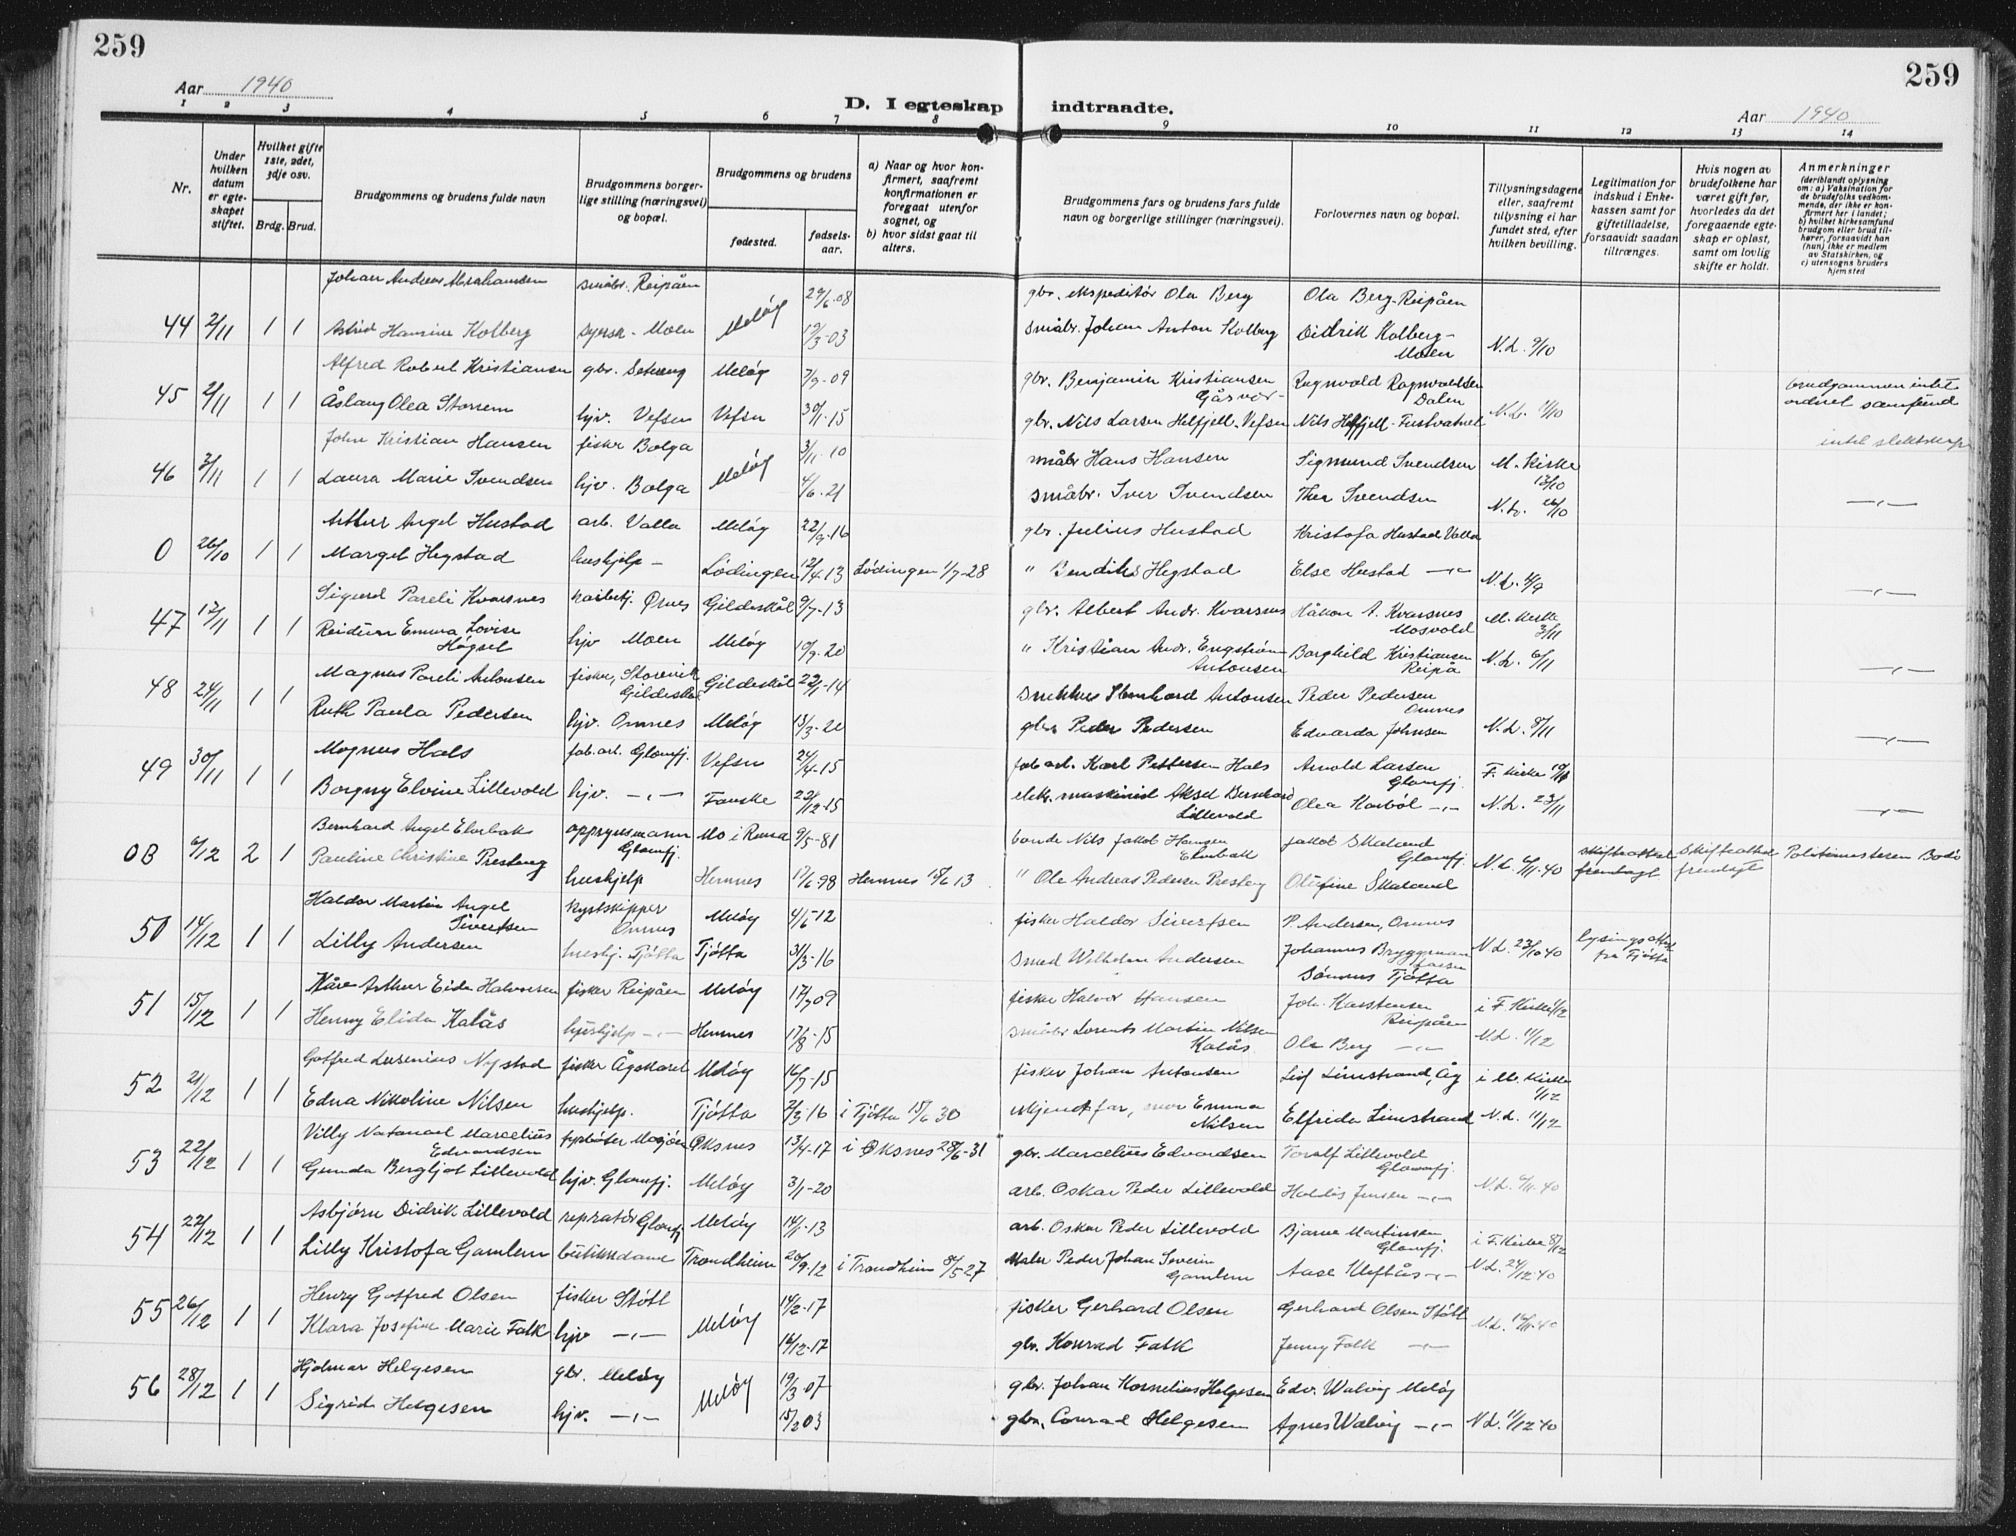 259
259
Aar 1940
D. I egteskap indtraadte.
Aar 1940
1 2 3 4 5 6 7 8 9 10 11 12 13 14
Nr.
Under hvilken datum er egteskapet stiftet.
Hvilket gifte 1ste, 2det, 3dje osv.
Brdg. Brud.
Brudgommens og brudens fulde navn
Brudgommens borgerlige stilling (næringsvei) og bopæl.
Brudgommens og brudens
fødested.
fødselsaar.
a) Naar og hvor konfirmert, saafremt konfirmationen er foregaat utenfor sognet, og
b) hvor sidst gaat til alters.
Brudgommens fars og brudens fars fulde navn og borgerlige stillinger (næringsvei).
Forlovernes navn og bopæl.
Tillysningsdagene eller, saafremt tillysning ei har fundet sted, efter hvilken bevilling.
Legitimation for indskud i Enkekassen samt for giftetilladelse, forsaavidt saadan tiltrænges.
Hvis nogen av brudefolkene har været gift før, hvorledes da det foregaaende egteskap er opløst, samt om lovlig skifte er holdt.
Anmerkninger
(deriblandt oplysning om: a) Vaksination for de brudefolks vedkommende, der ikke er konfirmert her i landet; b) hvilket kirkesamfund brudgom eller brud tilhører, forsaavidt han (hun) ikke er medlem av Statskirken, og c) utensogns bruders hjemsted
Johan Andreas Abrahamsen småbr. Reipåen 29/6-08 gbr. ekspeditør Ola Berg Ola Berg-Reipåen
44 2/11 1 1 Meløy
Astrid Hansine Kolberg syersk - Moen 12/3-03 småbr. Johan Anton Kolberg Didrik Kolberg - Moen N.L. 9/10
Alfred Robert Kristiansen gbr. Setveng Meløy 7/9-09 gbr. Benjamin Kristiansen Gåsvær - Ragnvald Ragnvaldsen Dalen brudgommen intet ordnet samfund
45 2/11 1 1 Åslaug Olea Storrem hjv. Vefsn Vefsn 30/1-15 gbr. Nils Larsen Helfjell-Vefsn Nils Helfjell-Fustvatnet N.L. 11/10
John Kristian Hansen fisker Bolga 3/11-10 småbr Hans Hansen Sigmund Svendsen M. Kirke 13/10 intet slektskap
46 3/11 1 1 Meløy
Laura Marie Svendsen hjv. Bolga 4/6-21 småbr. Iver Svendsen Thea Svendsen N.L. 26/10 -"-
Arthur Angel Hustad arb. Valla Meløy 22/9-16 gbr. Julius Hustad Kristofa Hustad Valla
0 26/10 1 1 Margel Hegstad hushjelp - Lødingen 12/4-13 Lødingen 1/7-28 " Bendiks Hegstad Else Hustad -"- N.L. 4/9 -"-
Sigurd Pareli Kvarsnes Ørnes Gildeskål 9/7-13 gbr. Albert Andr. Kvarsnes Håkon A. Kvarsnes Mosvold M. Kirke 3/11
47 12/11 1 1 Reidun Emma Lovise Høgset hjv Moen Meløy 10/9-20 " Kristian Andr. Engstrøm Antonsen Borghild Kristiansen Reipå N.L. 6/11 -"-
Magnus Pareli Antonsen fisker, Storvik Gildeskål Gildeskål 22/1-14 snekker Stenhard Antonsen Peder Pedersen Ornnes
48 24/11 1 1 Ruth Paula Pedersen hjv. Ornnes Meløy 13/3-20 gbr Peder Pedersen Edvarda Johnsen N.L. 8/11 -"-
49 30/11 1 1 Magnus Hals fab. arb. Glomfj. Vefsn 24/4-15 fab arb. Karl Pettersen Hals Arnold Larsen Glomfj. F. Kirke 10/11
Borgny Elvine Lillevold hjv. -"- Fauske 22/12-15 elektr. maskinist Aksel Bernhard Lillevold Olea Karbøl -"- N.L. 23/11 -"-
Bernhard Angel Elvebakk oppsynsmann Glomfj. Mo i Rana 9/5-81 bonde Nils Jakob Hansen Elvebakk Jakob Skaland Glomfj.
0B 6/12 2 1 Pauline Christine Presteng hushjelp Hemnes 17/6 98 Hemnes 15/6 13 " Ole Andreas Pedersen Presteng Olufine Skaland N.L. 6/11-40 skifteattest fremlagt Skifteattest fremlagt Politimesteren Bodø
Haldor Martin Angel Sivertsen kystskipper Ornnes Meløy 4/6-12 fisker Haldor Sivertsen P. Andersen, Ornnes
50 14/12 1 1 Lilly Andersen hushj. Tjøtta Tjøtta 31/3-16 smed Wilhelm Andersen Johannes Bryggman Sømnes Tjøtta N.L. 23/10 40 lysingsattest fra Tjøtta
51 15/12 1 1 Kåre Arthur Eide Halvorsen fisker Reipåen Meløy 17/7 09 fisker Halvor Hansen Joh. Karstensen Reipåen i F. Kirke 1/12
Henny Elida Kalås hushjelp -"- Hemnes 17/8-15 småbr Lorents Martin Nilsen Kalås Ole Berg -"- N.L. 11/12
Gotfred Lurenius Nystad fisker Ågskaret Meløy 16/7-15 fisker Johan Antonsen Leif Limstrand, Åg i M. Kirke 1/12
52 21/12 1 1 Edna Nikoline Nilsen hushjelp. Tjøtta 2/3-16 i Tjøtta 15/6 30 ukjent far, mor Emma Nilsen Elfrida Limstrand N.L. 11/12
Villy Natanael Marcelius Edvardsen Mosjøen Øksnes 13/4-17 i Øksnes 28/6-31 gbr. Marcelius Edvardsen Toralf Lillevold Glomfj.
53 22/12 1 1 Gunda Bergljot Lillevold hjv. Glomfj. Meløy 3/1-20 arb. Oskar Peder Lillevold Haldis Jensen -"- N.L. 9/11-40
54 22/12 1 1 Asbjørn Didrik Lillevold repratør Glomfj Meløy 14/1-13 arb. Oskar Peder Lillevold Bjarne Martinsen Glomfj. i F. Kirke 8/12
Lilly Kristofa Gamlem butikkdame Trondheim 20/9-12 i Trondheim 8/5 27 Maler Peder Johan Severin Gamlem Aase Kleftås -"- N.L. 24/12 40
Henry Gotfred Olsen fisker Støtt 14/2-17 fisker Gerhard Olsen Gerhard Olsen Støtt
55 26/12 1 1 Meløy
Klara Josefine Marie Falk hjv -"- 14/12-17 gbr. Konrad Falk Jenny Falk -"- N.L. 16/11-40
Hjalmar Helgesen gbr. Meløy 19/3-07 gbr. Johan Kornelius Helgesen Edv. Walvig Meløy
56 28/12 1 1 Meløy
Sigrid Helgesen hjv. -"- 15/2 03 gbr. Conrad Helgesen Agnes Walvig -"- N.L. 11/12 40